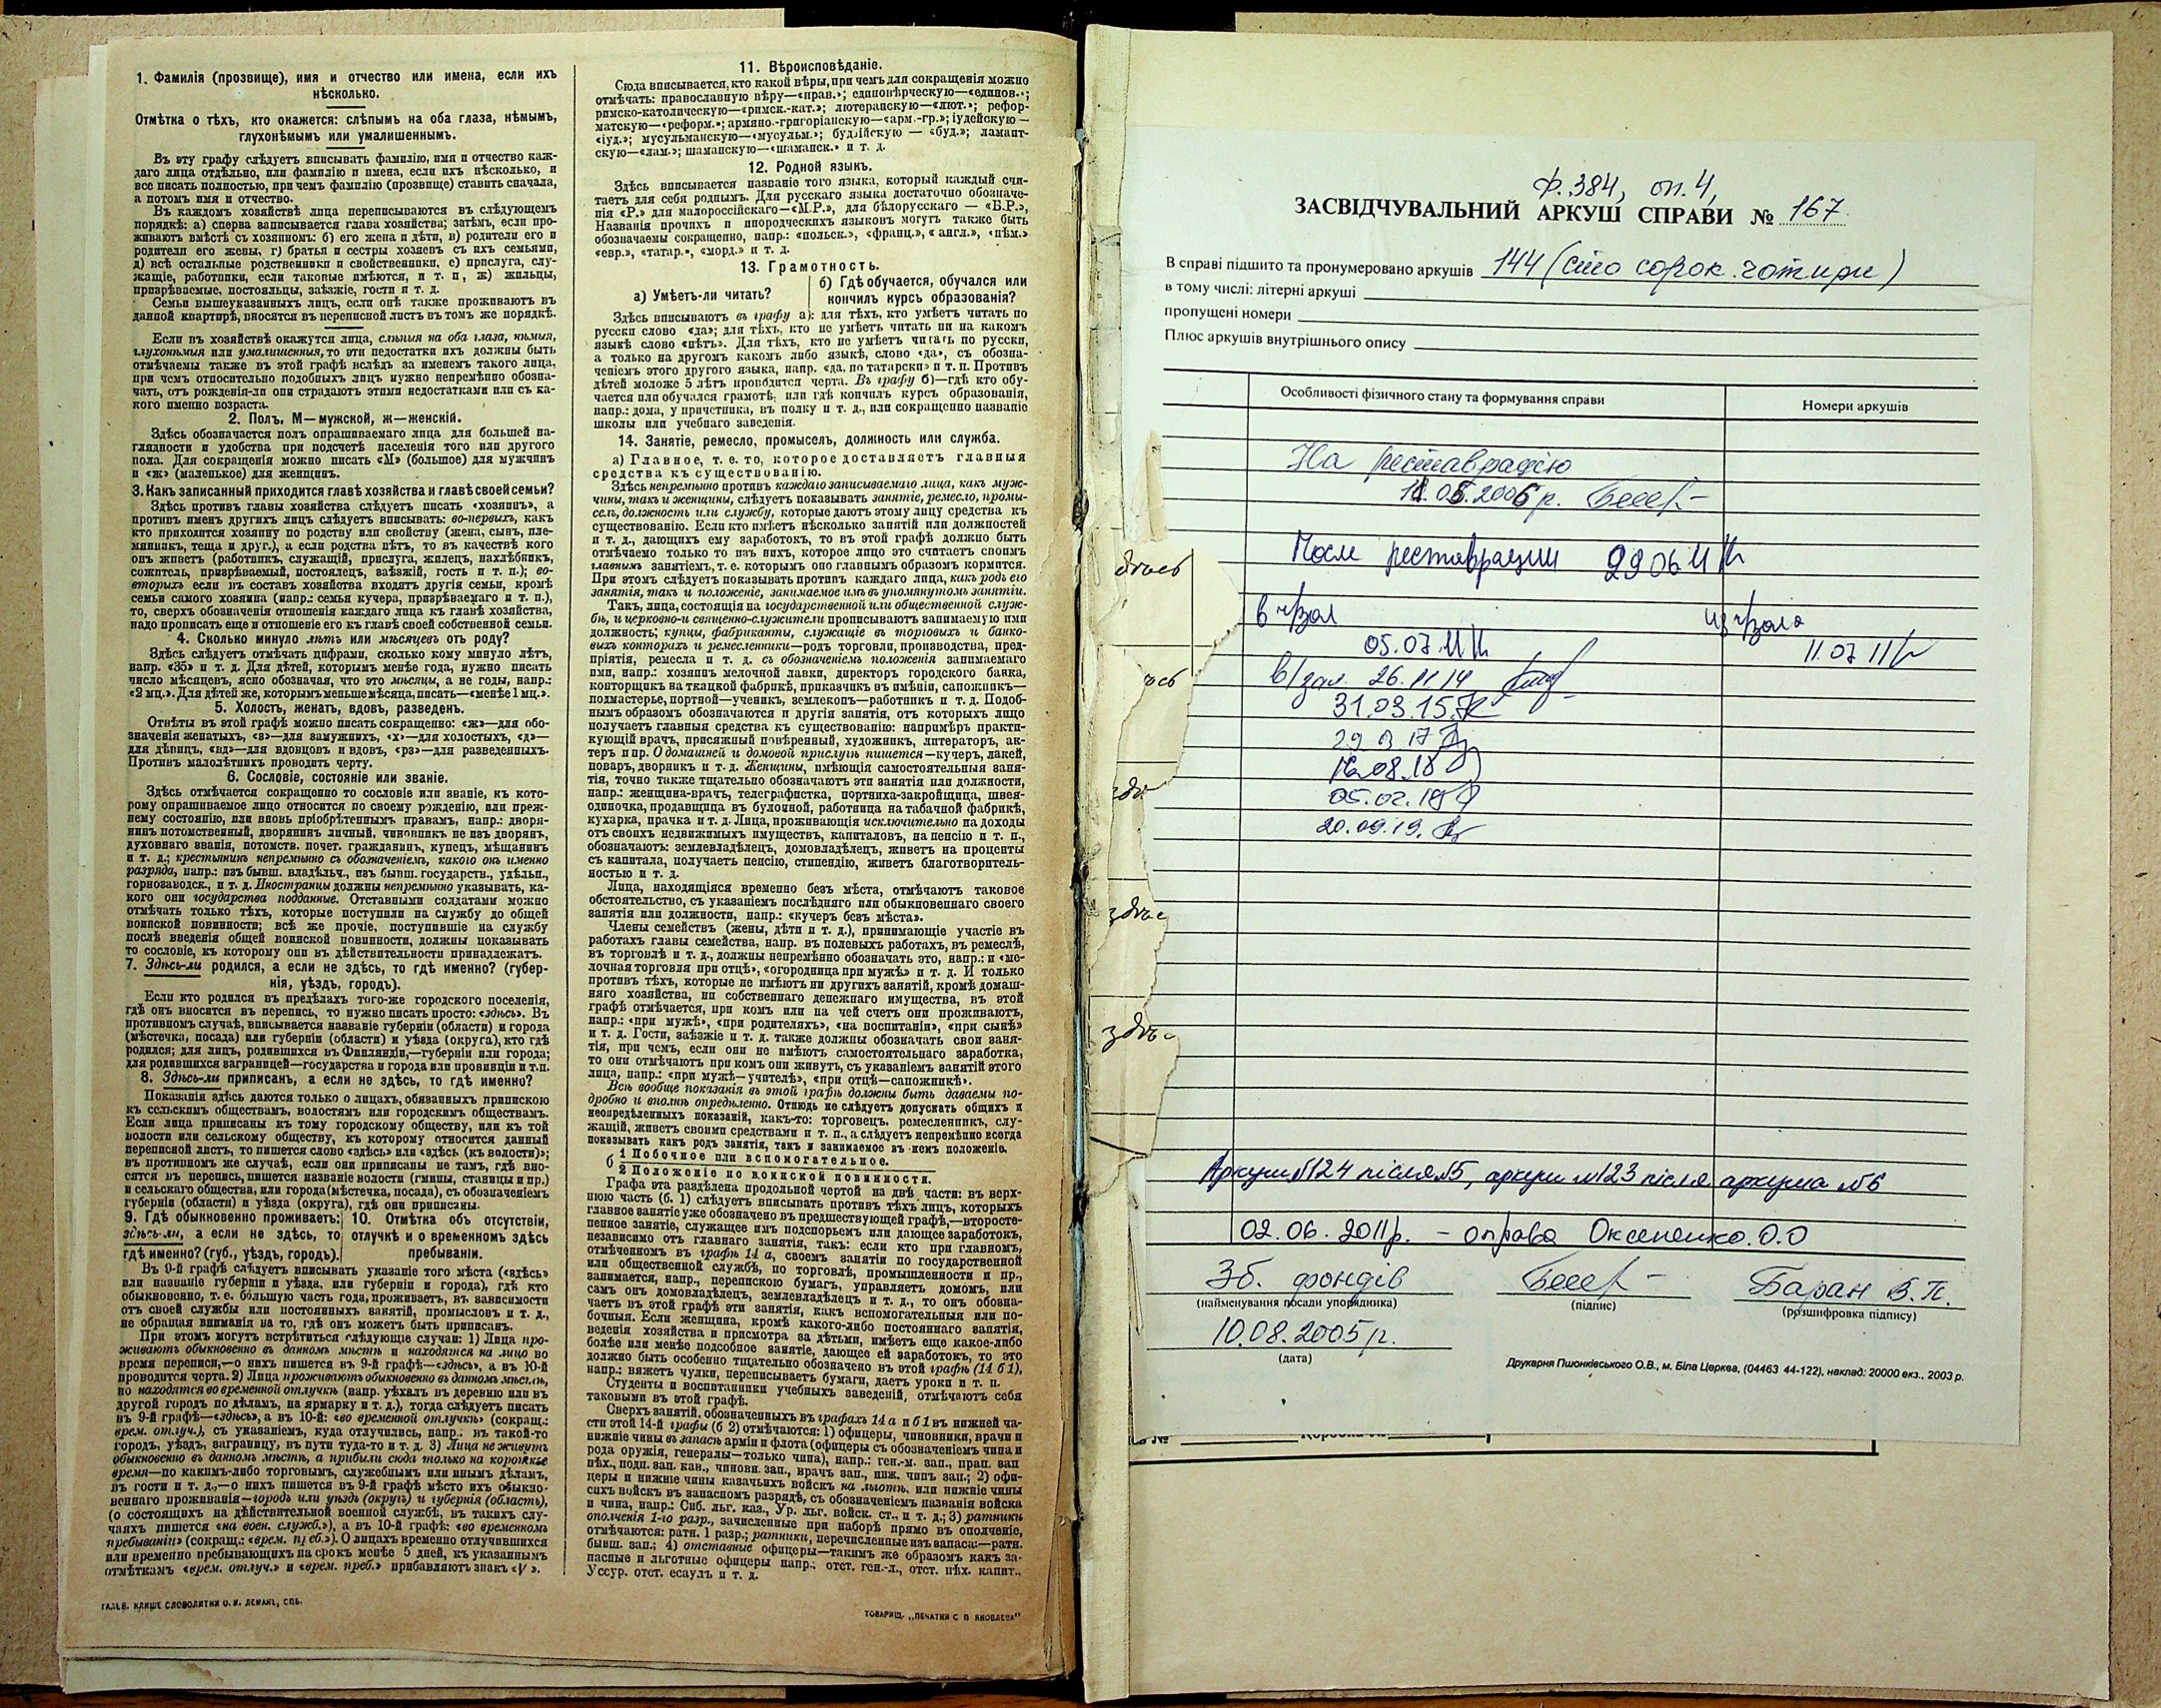 1. Фамилія (прозвище), имя и отчество или имена, если ихъ
нѣсколько.
Отмѣтка о тѣхъ, кто окажется: слѣпымъ на оба глаза, нѣмымъ,
глухонѣмымъ или умалишеннымъ.
Въ эту графу слѣдуетъ вписывать фамилію, имя и отчество каж-
даго лица отдѣльно, или фамилію и имена, если ихъ нѣсколько, и
все писать полностью, при чемъ фамилію (прозвище) ставить сначала,
а потомъ имя и отчество.
Въ каждомъ хозяйствѣ лица переписываются въ слѣдующемъ
порядкѣ: а) сперва записывается глава хозяйства; затѣмъ, если про-
живаютъ вмѣстѣ съ хозяиномъ: б) его жена и дѣти, в) родители его и
родители его жены, г) братья и сестры хозяевъ съ ихъ семьями,
д) всѣ остальные родственники и свойственники, е) прислуга, слу-
жащіе, работники, если таковые имѣются, и т. п., ж) жильцы,
призрѣваемые, постояльцы, заѣзжіе, гости и т. д.
Семьи вышеуказанныхъ лицъ, если онѣ также проживаютъ въ
данной квартирѣ, вносятся въ переписной листъ въ томъ же порядкѣ.
Если въ хозяйствѣ окажутся лица, слѣпыя на оба глаза, нѣмыя,
глухонѣмыя или умалишенныя, то эти недостатки ихъ должны быть
отмѣчаемы также въ этой графѣ вслѣдъ за именемъ такого лица,
при чемъ относительно подобныхъ лицъ нужно непремѣнно обозна-
чать, отъ рожденія-ли они страдаютъ этими недостатками или съ ка-
кого именно возраста.
2. Полъ, М—мужской, ж—женскій.
Здѣсь обозначается полъ опрашиваемаго лица для большей на-
глядности и удобства при подсчетѣ населенія того или другого
пола. Для сокращенія можно писать «М» (большое) для мужчинъ
и «ж» (маленькое) для женщинъ.
3. Какъ записанный приходится главѣ хозяйства и главѣ своей семьи?
Здѣсь противъ главы хозяйства слѣдуетъ писать «хозяинъ», а
противъ именъ другихъ лицъ слѣдуетъ вписывать: во-первыхъ, какъ
кто приходится хозяину по родству или свойству (жена, сынъ, пле-
мянникъ, теща и друг.), а если родства нѣтъ, то въ качествѣ кого
онъ живетъ (работникъ, служащій, прислуга, жилецъ, нахлѣбникъ,
сожитель, призрѣваемый, постоялецъ, заѣзжій, гость и т. п.); во-
вторыхъ если въ составъ хозяйства входятъ другія семьи, кромѣ
семьи самого хозяина (напр.: семья кучера, призрѣваемаго и т. п.),
то, сверхъ обозначенія отношенія каждаго лица къ главѣ хозяйства,
надо прописать еще и отношеніе его къ главѣ своей собственной семьи.
4. Сколько минуло лѣтъ или мѣсяцевъ отъ роду?
Здѣсь слѣдуетъ отмѣчать цифрами, сколько кому минуло лѣтъ,
напр. «35» и т. д. Для дѣтей, которымъ менѣе года, нужно писать
число мѣсяцевъ, ясно обозначая, что это мѣсяцы, а не годы, напр.:
«2 мц.». Для дѣтей же, которымъ меньше мѣсяца, писать—«менѣе 1 мц.».
5. Холостъ, женатъ, вдовъ, разведенъ.
Отвѣты въ этой графѣ можно писать сокращенно: «ж»—для обо-
значенія женатыхъ, «з»—для замужнихъ, «х»—для холостыхъ, «д»—
для дѣвицъ, «вд»—для вдовцовъ и вдовъ, «рз»—для разведенныхъ.
Противъ малолѣтнихъ проводить черту.
6. Сословіе, состояніе или званіе.
Здѣсь отмѣчается сокращенно то сословіе или званіе, къ кото-
рому опрашиваемое лицо относится по своему рожденію, или преж-
нему состоянію, или вновь пріобрѣтеннымъ правамъ, напр.: дворя-
нинъ потомственный, дворянинъ личный, чиновникъ не изъ дворянъ,
духовнаго званія, потомств. почет. гражданинъ, купецъ, мѣщанинъ
и т. д.; крестьянинъ непремѣнно съ обозначеніемъ, какого онъ именно
разряда, напр.: изъ бывш. владѣльч., изъ бывш. государств., удѣльн.,
горнозаводск., и т. д. Иностранцы должны непремѣнно указывать, ка-
кого они государства подданные. Отставными солдатами можно
отмѣчать только тѣхъ, которые поступили на службу до общей
воинской повинности; всѣ же прочіе, поступившіе на службу
послѣ введенія общей воинской повинности, должны показывать
то сословіе, къ которому они въ дѣйствительности принадлежатъ.
7. Здѣсь-ли родился, а если не здѣсь, то гдѣ именно? (губер-
нія, уѣздъ, городъ).
Если кто родился въ предѣлахъ того-же городского поселенія,
гдѣ онъ вносится въ перепись, то нужно писать просто: «здѣсь». Въ
противномъ случаѣ, вписывается названіе губерніи (области) и города
(мѣстечка, посада) или губерніи (области) и уѣзда (округа), кто гдѣ
родился; для лицъ, родившихся въ Финляндіи,—губерніи или города;
для родившихся заграницей—государства и города или провинціи и т.п.
8. Здѣсь-ли приписанъ, а если не здѣсь, то гдѣ именно?
Показанія здѣсь даются только о лицахъ, обязанныхъ припискою
къ сельскимъ обществамъ, волостямъ или городскимъ обществамъ.
Если лица приписаны къ тому городскому обществу, или къ той
волости или сельскому обществу, къ которому относится данный
переписной листъ, то пишется слово «здѣсь» или «здѣсь (къ волости)»;
въ противномъ же случаѣ, если они приписаны не тамъ, гдѣ вно-
сятся въ перепись, пишется названіе волости (гмины, станицы и пр.)
и сельскаго общества, или города (мѣстечка, посада), съ обозначеніемъ
губерніи (области) и уѣзда (округа), гдѣ они приписаны.
9. Гдѣ обыкновенно проживаетъ:
здѣсь-ли, а если не здѣсь, то
гдѣ именно? (губ., уѣздъ, городъ).
10. Отмѣтка объ отсутствіи,
отлучкѣ и о временномъ здѣсь
пребываніи.
Въ 9-й графѣ слѣдуетъ вписывать указаніе того мѣста («здѣсь»
или названіе губерніи и уѣзда, или губерніи и города), гдѣ кто
обыкновенно, т. е. большую часть года, проживаетъ, въ зависимости
отъ своей службы или постоянныхъ занятій, промысловъ и т. д.,
не обращая вниманія на то, гдѣ онъ можетъ быть приписанъ.
При этомъ могутъ встрѣтиться слѣдующіе случаи: 1) Лица про-
живаютъ обыкновенно въ данномъ мѣстѣ и находятся на лицо во
время переписи,—о нихъ пишется въ 9-й графѣ—«здѣсь», а въ 10-й
проводится черта. 2) Лица проживаютъ обыкновенно въ данномъ мѣстѣ,
но находятся во временной отлучкѣ (напр. уѣхалъ въ деревню или въ
другой городъ по дѣламъ, на ярмарку и т. д.), тогда слѣдуетъ писать
въ 9-й графѣ—«здѣсь», а въ 10-й: «во временной отлучкѣ» (сокращ.:
врем. отлуч.), съ указаніемъ, куда отлучились, напр.: въ такой-то
городъ, уѣздъ, заграницу, въ пути туда-то и т. д. 3) Лица не живутъ
обыкновенно въ данномъ мѣстѣ, а прибыли сюда только на короткое
время—по какимъ-либо торговымъ, служебнымъ или инымъ дѣламъ,
въ гости и т. д.,—о нихъ пишется въ 9-й графѣ мѣсто ихъ обыкно-
веннаго проживанія—городъ или уѣздъ (округъ) и губернія (область),
(о состоящихъ на дѣйствительной военной службѣ, въ такихъ слу-
чаяхъ пишется «на воен. служб.»), а въ 10-й графѣ: «во временномъ
пребываніи» (сокращ.: «врем. преб.»). О лицахъ временно отлучившихся
или временно пребывающихъ на срокъ менѣе 5 дней, къ указаннымъ
отмѣткамъ «врем. отлуч.» и «врем. преб.» прибавляютъ знакъ «V».
ГАЛЬВ. КЛИШЕ СЛОВОЛИТНИ О. И. ЛЕМАНЪ, СПБ.
11. Вѣроисповѣданіе.
Сюда вписывается, кто какой вѣры, при чемъ для сокращенія можно
отмѣчать: православную вѣру—«прав.»; единовѣрческую—«единов.»;
римско-католическую—«римск.-кат.»; лютеранскую—«лют.»; рефор-
матскую—«реформ.»; армяно.-григоріанскую—«арм.-гр.»; іудейскую—
«іуд.»; мусульманскую—«мусульм.»; буддійскую — «буд.»; ламаит-
скую—«лам.»; шаманскую—«шаманск.» и т. д.
12. Родной языкъ.
Здѣсь вписывается названіе того языка, который каждый счи-
таетъ для себя роднымъ. Для русскаго языка достаточно обозначе-
нія «Р.» для малороссійскаго—«М.Р.», для бѣлорусскаго — «Б.Р.»,
Названія прочихъ и инородческихъ языковъ могутъ также быть
обозначаемы сокращенно, напр.: «польск.», «франц.», «англ.», «нѣм.»
«евр.», «татар.», «морд.» и т. д.
13. Грамотность.
а) Умѣетъ-ли читать?
б) Гдѣ обучается, обучался или
кончилъ курсъ образованія?
Здѣсь вписываютъ въ графу а): для тѣхъ, кто умѣетъ читать по
русски слово «да»; для тѣхъ, кто не умѣетъ читать ни на какомъ
языкѣ слово «нѣтъ». Для тѣхъ, кто не умѣетъ читать по русски,
а только на другомъ какомъ либо языкѣ, слово «да», съ обозна-
ченіемъ этого другого языка, напр. «да, по татарски» и т. п. Противъ
дѣтей моложе 5 лѣтъ проводится черта. Въ графу б)—гдѣ кто обу-
чается или обучался грамотѣ, или гдѣ кончилъ курсъ образованія,
напр.: дома, у причетника, въ полку и т. д., или сокращенно названіе
школы или учебнаго заведенія.
14. Занятіе, ремесло, промыселъ, должность или служба.
а) Главное, т. е. то, которое доставляетъ главныя
средства къ существованію.
Здѣсь непремѣнно противъ каждаго записываемаго лица, какъ муж-
чины, такъ и женщины, слѣдуетъ показывать занятіе, ремесло, промы-
селъ, должность или службу, которые даютъ этому лицу средства къ
существованію. Если кто имѣетъ нѣсколько занятій или должностей
и т. д., дающихъ ему заработокъ, то въ этой графѣ должно быть
отмѣчаемо только то изъ нихъ, которое лицо это считаетъ своимъ
главнымъ занятіемъ, т. е. которымъ оно главнымъ образомъ кормится.
При этомъ слѣдуетъ показывать противъ каждаго лица, какъ родъ его
занятія, такъ и положеніе, занимаемое имъ въ упомянутомъ занятіи.
Такъ, лица, состоящія на государственной или общественной служ-
бѣ, и церковно-и священно-служители прописываютъ занимаемую ими
должность; купцы, фабриканты, служащіе въ торговыхъ и банко-
выхъ конторахъ и ремесленники—родъ торговли, производства, пред-
пріятія, ремесла и т. д. съ обозначеніемъ положенія занимаемаго
ими, напр.: хозяинъ мелочной лавки, директоръ городского банка,
конторщикъ на ткацкой фабрикѣ, приказчикъ въ имѣніи, сапожникъ—
подмастерье, портной—ученикъ, землекопъ—работникъ и т. д. Подоб-
нымъ образомъ обозначаются и другія занятія, отъ которыхъ лицо
получаетъ главныя средства къ существованію: напримѣръ практи-
кующій врачъ, присяжный повѣренный, художникъ, литераторъ, ак-
теръ и пр. О домашней и домовой прислугѣ пишется—кучеръ, лакей,
поваръ, дворникъ и т. д. Женщины, имѣющія самостоятельныя заня-
тія, точно также тщательно обозначаютъ эти занятія или должности,
напр.: женщина-врачъ, телеграфистка, портниха-закройщица, швея-
одиночка, продавщица въ булочной, работница на табачной фабрикѣ,
кухарка, прачка и т. д. Лица, проживающія исключительно на доходы
отъ своихъ недвижимыхъ имуществъ, капиталовъ, на пенсію и т. п.,
обозначаютъ: землевладѣлецъ, домовладѣлецъ, живетъ на проценты
съ капитала, получаетъ пенсію, стипендію, живетъ благотворитель-
ностью и т. д.
Лица, находящіяся временно безъ мѣста, отмѣчаютъ таковое
обстоятельство, съ указаніемъ послѣдняго или обыкновеннаго своего
занятія или должности, напр.: «кучеръ безъ мѣста».
Члены семействъ (жены, дѣти и т. д.), принимающіе участіе въ
работахъ главы семейства, напр. въ полевыхъ работахъ, въ ремеслѣ,
въ торговлѣ и т. д., должны непремѣнно обозначать это, напр.: и «ме-
лочная торговля при отцѣ», «огородница при мужѣ» и т. д. И только
противъ тѣхъ, которые не имѣютъ ни другихъ занятій, кромѣ домаш-
няго хозяйства, ни собственнаго денежнаго имущества, въ этой
графѣ отмѣчается, при комъ или на чей счетъ они проживаютъ,
напр.: «при мужѣ», «при родителяхъ», «на воспитаніи», «при сынѣ»
и т. д. Гости, заѣзжіе и т. д. также должны обозначать свои заня-
тія, при чемъ, если они не имѣютъ самостоятельнаго заработка,
то они отмѣчаютъ при комъ они живутъ, съ указаніемъ занятій этого
лица, напр.: «при мужѣ—учителѣ», «при отцѣ—сапожникѣ».
Всѣ вообще показанія въ этой графѣ должны быть даваемы по-
дробно и вполнѣ опредѣленно. Отнюдь не слѣдуетъ допускать общихъ и
неопредѣленныхъ показаній, какъ-то: торговецъ, ремесленникъ, слу-
жащій, живетъ своими средствами и т. п., а слѣдуетъ непремѣнно всегда
показывать какъ родъ занятія, такъ и занимаемое въ немъ положеніе.
б 1 Побочное или вспомогательное.
2 Положеніе по воинской повинности.
Графа эта раздѣлена продольной чертой на двѣ части: въ верх-
нюю часть (б. 1) слѣдуетъ вписывать противъ тѣхъ лицъ, которыхъ
главное занятіе уже обозначено въ предшествующей графѣ,—второсте-
пенное занятіе, служащее имъ подспорьемъ или дающее заработокъ,
независимо отъ главнаго занятія, такъ: если кто при главномъ,
отмѣченномъ въ графѣ 14 а, своемъ занятіи по государственной
или общественной службѣ, по торговлѣ, промышленности и пр.,
занимается, напр., перепискою бумагъ, управляетъ домомъ, или
самъ онъ домовладѣлецъ, землевладѣлецъ и т. д., то онъ обозна-
чаетъ въ этой графѣ эти занятія, какъ вспомогательныя или по-
бочныя. Если женщина, кромѣ какого-либо постояннаго занятія,
веденія хозяйства и присмотра за дѣтьми, имѣетъ еще какое-либо
болѣе или менѣе подсобное занятіе, дающее ей заработокъ, то это
должно быть особенно тщательно обозначено въ этой графѣ (14 б 1),
напр.: вяжетъ чулки, переписываетъ бумаги, даетъ уроки и т. п.
Студенты и воспитанники учебныхъ заведеній, отмѣчаютъ себя
таковыми въ этой графѣ.
Сверхъ занятій, обозначенныхъ въ графахъ 14 а и б 1 въ нижней ча-
сти этой 14-й графы (б 2) отмѣчаются: 1) офицеры, чиновники, врачи и
нижніе чины въ запасѣ арміи и флота (офицеры съ обозначеніемъ чина и
рода оружія, генералы—только чина), напр.: ген.-м. зап., прап. зап
пѣх., подп. зап. кав., чиновн. зап., врачъ зап., ниж. чинъ зап.; 2) офи-
церы и нижніе чины казачьихъ войскъ на льготѣ, или нижніе чины
сихъ войскъ въ запасномъ разрядѣ, съ обозначеніемъ названія войска
и чина, напр.: Сиб. льг. каз., Ур. льг. войск. ст., и т. д.; 3) ратники
ополченія 1-го разр., зачисленные при наборѣ прямо въ ополченіе,
отмѣчаются: ратн. 1 разр.; ратники, перечисленные изъ запаса:—ратн.
бывш. зап.; 4) отставные офицеры—такимъ же образомъ какъ за-
пасные и льготные офицеры напр.: отст. ген.-л., отст. пѣх. капит..
Уссур. отст. есаулъ и т. д.
ТОВАРИЩ. „ПЕЧАТНИ С П ЯКОВЛЕВА"
Ф. 384, оп. 4,
ЗАСВІДЧУВАЛЬНИЙ АРКУШ СПРАВИ № 167
В справі підшито та пронумеровано аркушів 144 (сто сорок чотири)
в тому числі: літерні аркуші
пропущені номери
Плюс аркушів внутрішнього опису
Особливості фізичного стану та формування справи
Номери аркушів
На реставрацію
05.2006 р.
После реставрации 29 06 11
в ч/зал
из ч/зала
05.07.11
11 07 11
в/зал 26.11.14
31.03.15
05.02.19
20.09.19.
здѣсь
здѣсь
Аркуш №124 після №5, аркуш №123 після аркуша №6
02.06.2011р. – оправа Оксененко. О.О
Зб. фондів
Баран В. П.
(найменування посади упорядника)
(підпис)
(розшифровка підпису)
10.08.2005 р.
(дата)
Друкарня Пшонківського О.В., м. Біла Церква, (04463 44-122), наклад: 20000 екз., 2003 р.